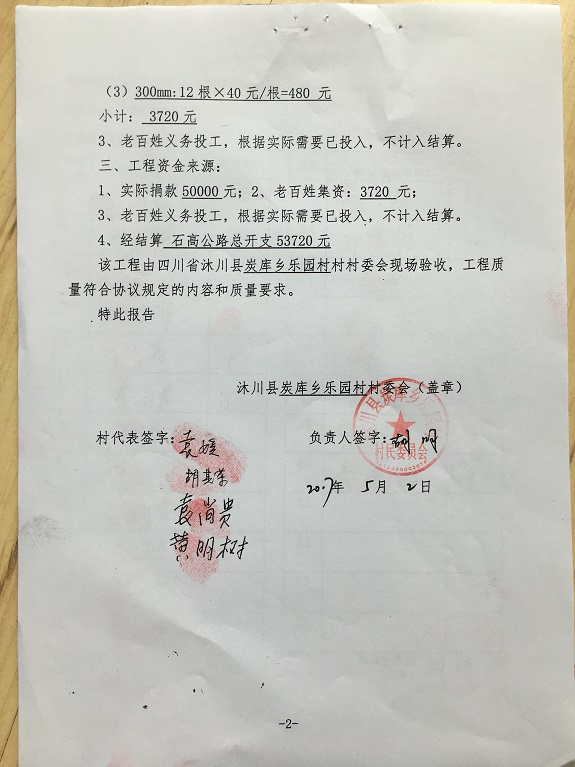 （3）300mm:12 根×40 元/根=480 元
小计： 3720 元
3、老百姓义务投工，根据实际需要已投入，不计入结算。
三、工程资金来源：
1、实际捐款 50000 元；2、老百姓集资：3720 元；
3、老百姓义务投工，根据实际需要已投入，不计入结算。
4、经结算 石高公路总开支 53720 元
该工程由四川省沐川县炭库乡乐园村村村委会现场验收，工程质
量符合协议规定的内容和质量要求。
特此报告
沐川县炭库乡乐园村村委会（盖章）
村民委员会
村代表签字：袁媛
负责人签字：胡明
胡其荣
2017年 5月 2日
袁尚贵
黄明树
-2-